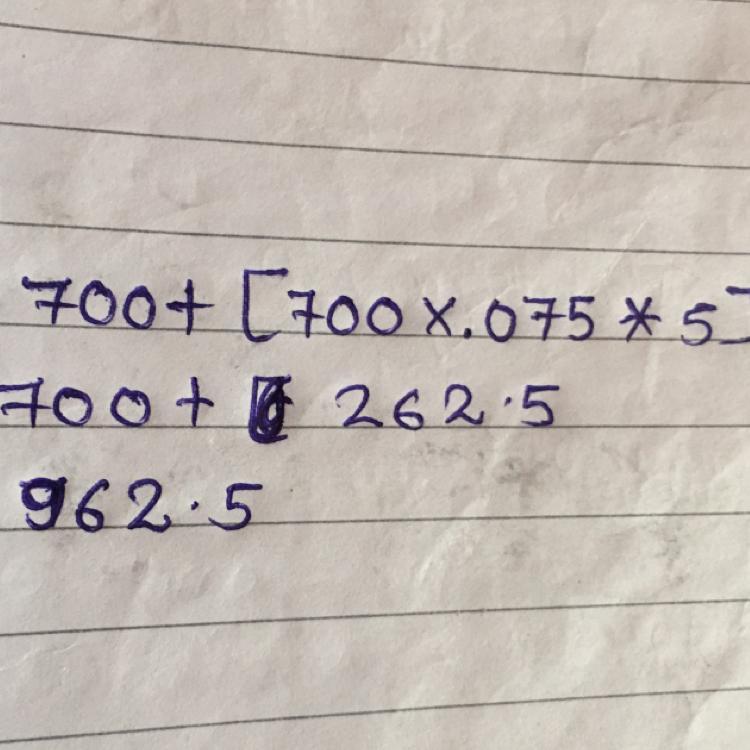 700+ [700 x .075 * 5]
700 + 262.5
962.5